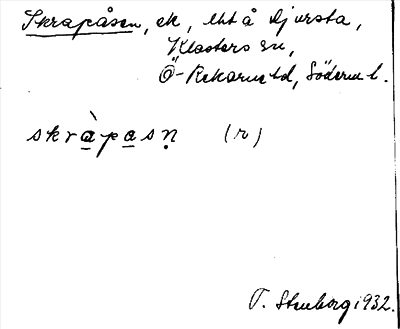 Skrapåsen, ek, lht å Djursta,
Klosters sn,
Ö-Rekarne hd, Söderm l.
skràpasṇ (r)
T. Stenborg 1932.